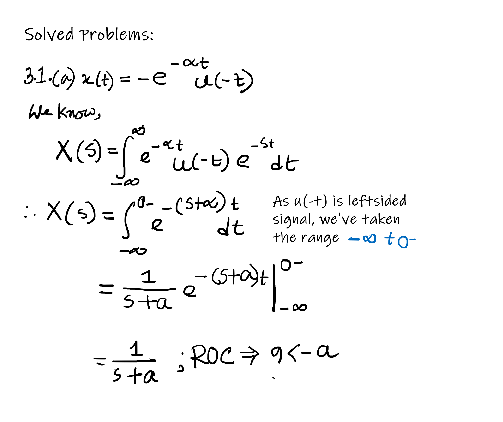 Solved Problems:
3.1.(a) x(t) = -e^{-αt} u(-t)
We know,
X(s) = ∫_{-∞}^{∞} e^{-αt} u(-t) e^{-st} dt
∴ X(s) = ∫_{-∞}^{0-} e^{-(s+α)t} dt
As u(-t) is leftsided
signal, we've taken
the range -∞ to 0-
= \frac{1}{s+a} e^{-(s+a)t} |_{-∞}^{0-}
= \frac{1}{s+a} ; ROC ⇒ σ<-a